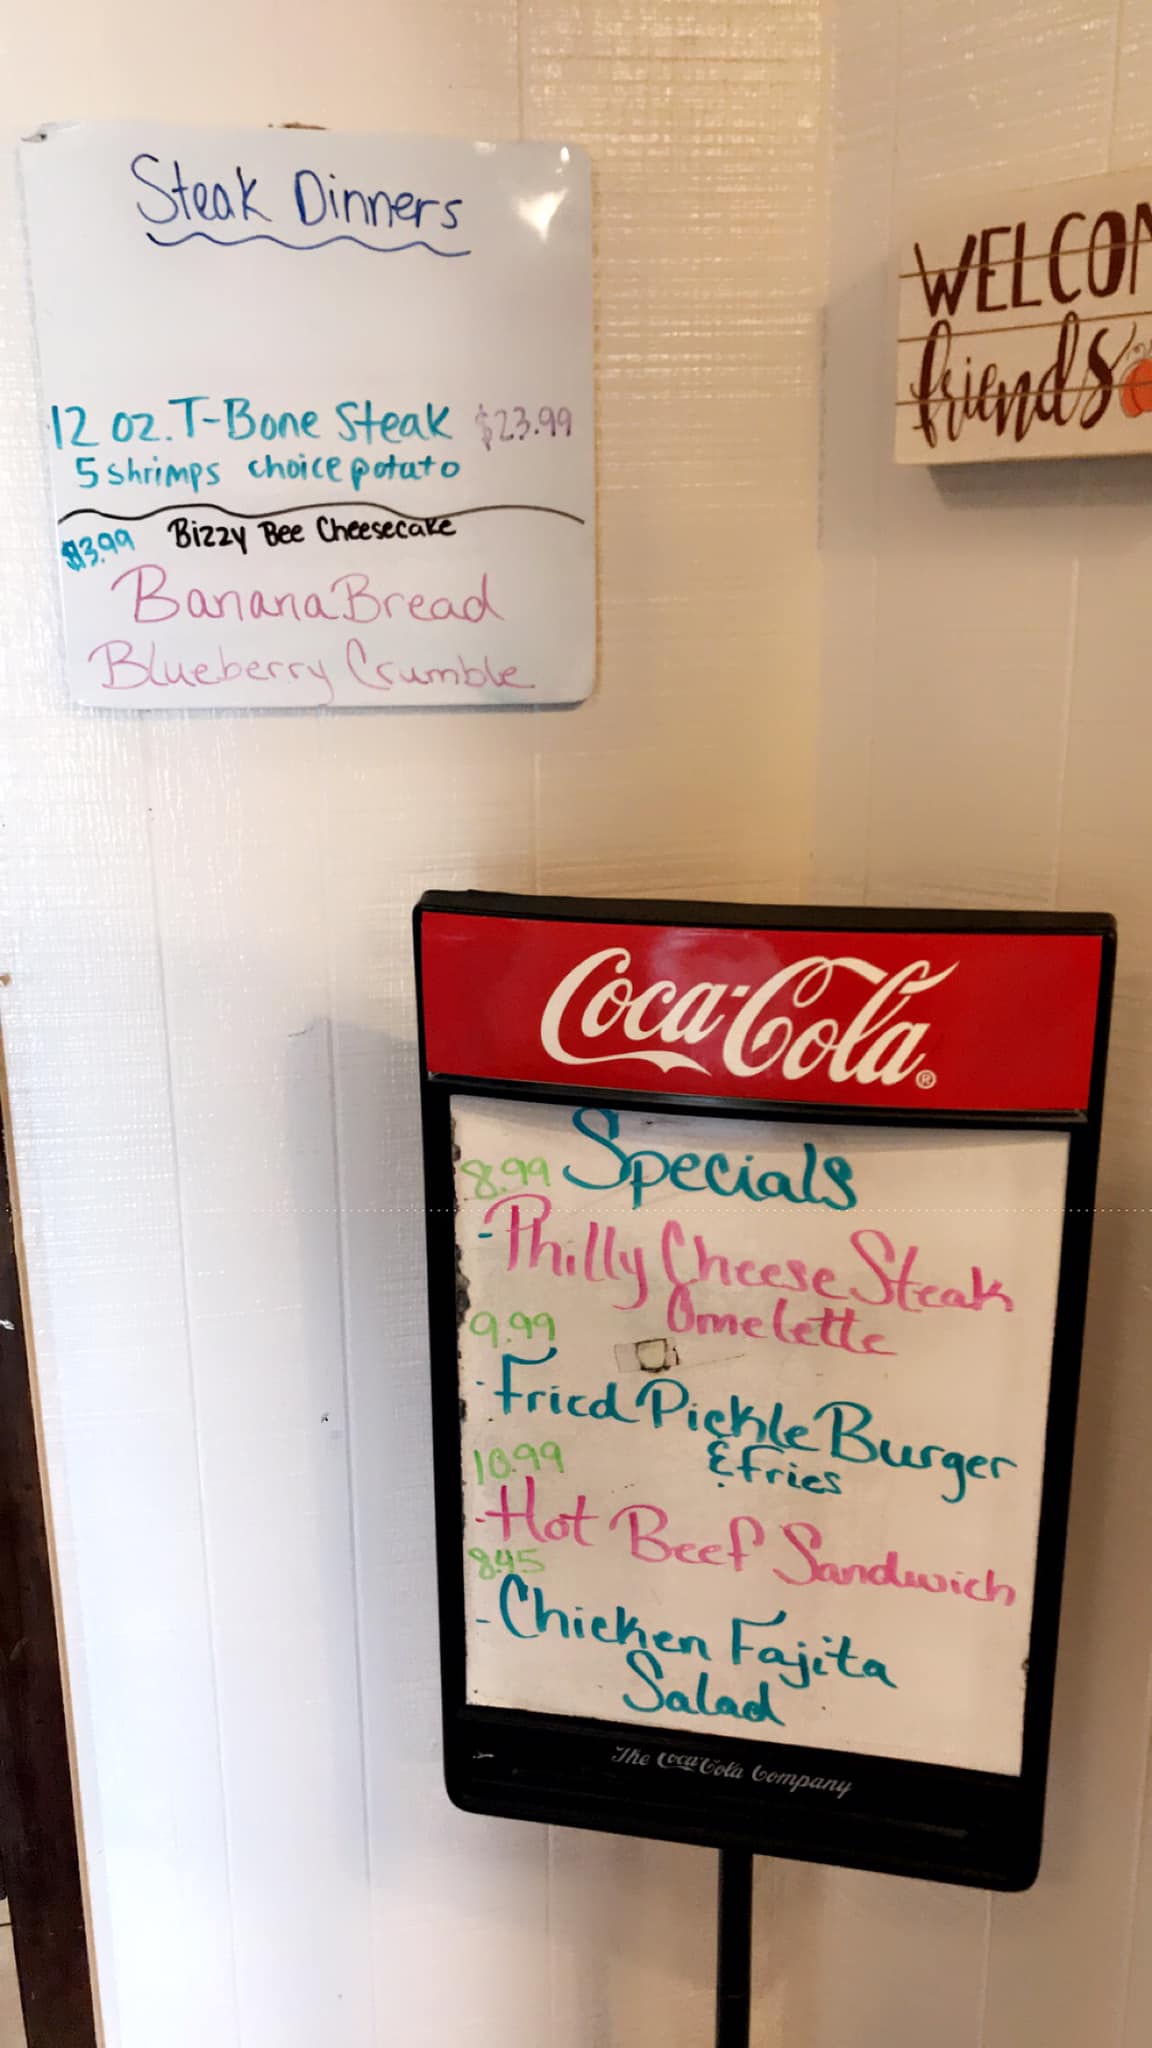 Steak Dinners
12 oz. T-Bone Steak $23.99
5 shrimps choice potato
$3.99 Bizzy Bee Cheesecake
Banana Bread
Blueberry Crumble
WELCOM
friends
Coca-Cola®
8.99 Specials
-Philly Cheese Steak
Omelette
9.99
-Fried Pickle Burger
& fries
10.99
-Hot Beef Sandwich
8.45
-Chicken Fajita
Salad
The Coca-Cola Company